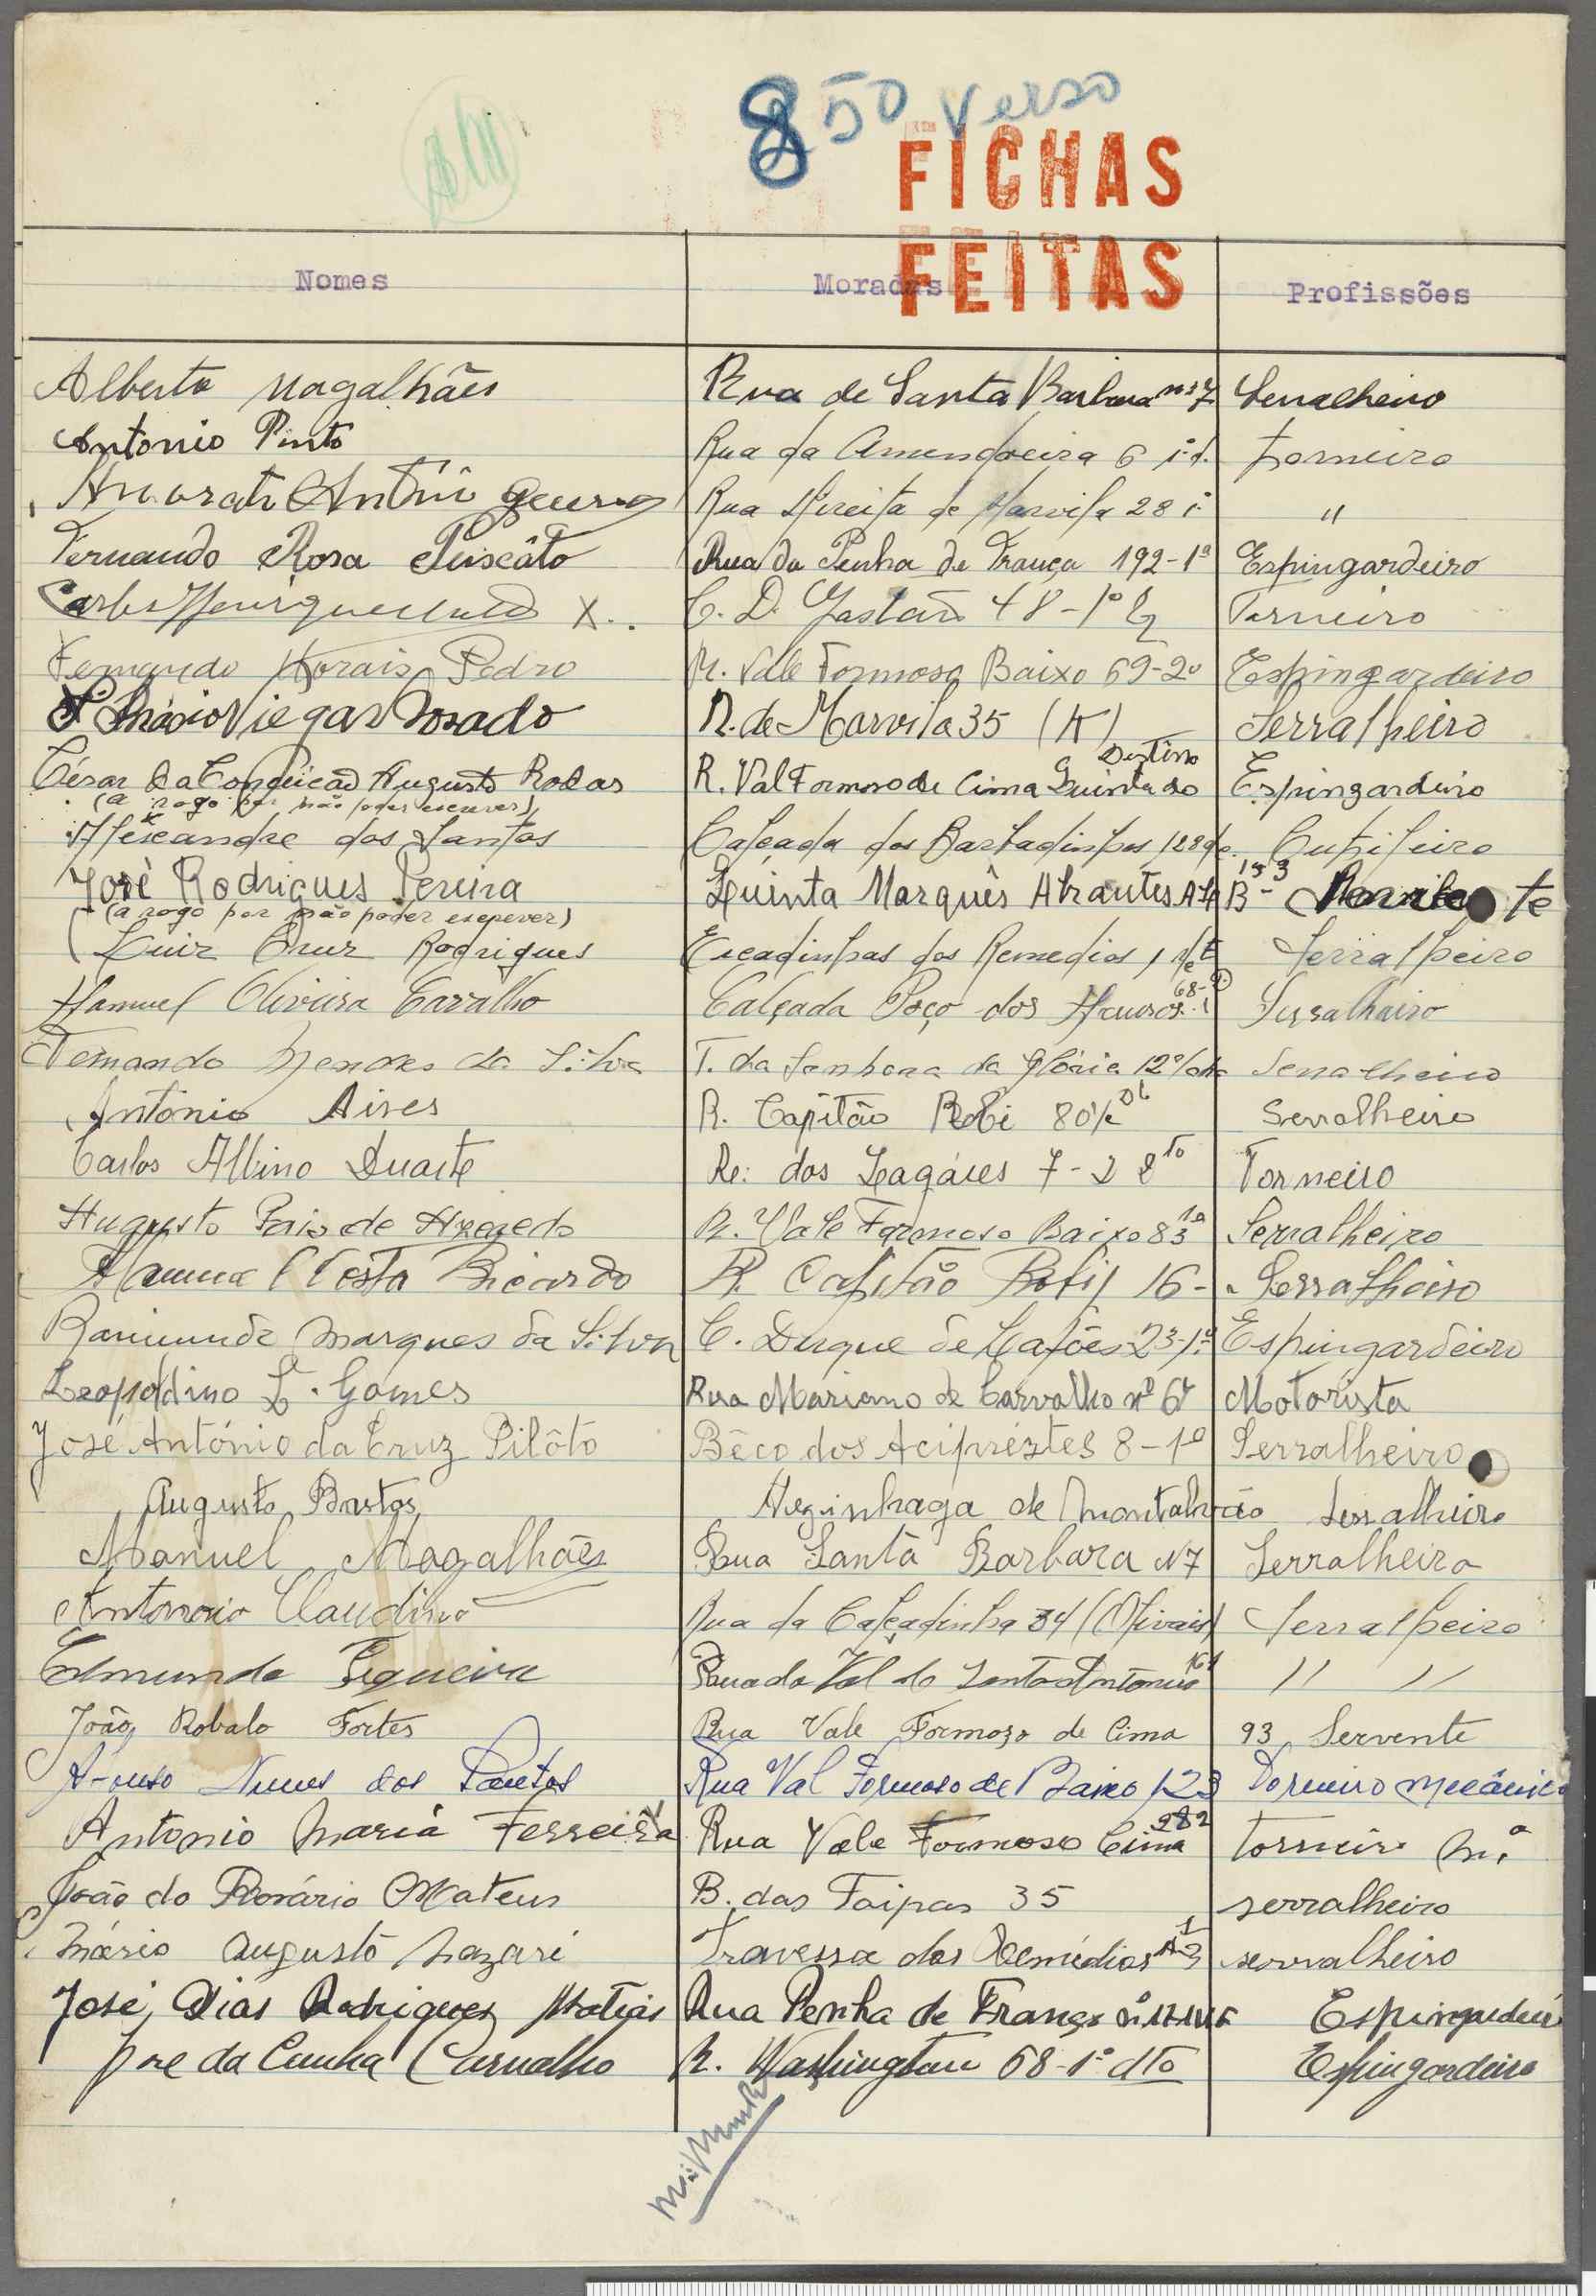 850 verso
FICHAS
FEITAS
Nomes Moradas Profissões
Alberto Magalhães Rua de Santa Barbara nº 7 Serralheiro
Antonio Pinto Rua da Amendoeira 6 Torneiro
Rua Direita de Marvila 28 "
Fernando Rosa Rua da Penha de França 192-1º Espingardeiro
Carlos X.. 48-1º Torneiro
Fernando Morais Pedro R. Vale Formoso Baixo 69-2º Espingardeiro
Viegas Rosado R. de Marvila 35 (K) Serralheiro
Destino
César da Conceicão Augusto Rodas R. Val Formoso de Cima Quinta do Espingardeiro
(a rogo por não poder escrever)
Alexandre dos Santos Calçada dos Barbadinhos 128
José Rodrigues Pereira Quinta Marquês Abrantes
(a rogo por não poder escrever)
Luiz Cruz Rodrigues Escadinhas dos Remedios 1 Serralheiro
Manuel Oliveira Carvalho Calçada Poço dos Mouros 68 Serralheiro
Fernando Mendes da Silva T. da Senhora da Glória 12 Serralheiro
António Aires R. Capitão 80 Serralheiro
Carlos Albino Duarte dos Lagares 7-2 Torneiro
Augusto Pais de Azevedo R. Vale Formoso Baixo 83 1º Serralheiro
Manuel Costa Ricardo R. Capitão 16- Serralheiro
Raimundo Marques da Silva C. Duque de Lafões 23-1º Espingardeiro
Leopoldino L. Gomes Rua Mariano de Carvalho nº Motorista
José António da Cruz Pilôto Bêco dos Aciprestes 8-1º Serralheiro
Augusto Bastos Azinhaga de Serralheiro
Manuel Magalhães Rua Santa Barbara N7 Serralheiro
Antonio Claudino Rua da Calçadinha 34 (Olivais) Serralheiro
Edmundo Rua do Val de Santo Antonio " "
João Robalo Fortes Rua Vale Formozo de Cima 93 Servente
Nunes dos Santos Rua Val Formoso de Baixo 123 Torneiro Mecânico
Antonio Maria Ferreira Rua Vale Formoso Cima 282 torneiro
João do Rosário Mateus B. das Taipas 35 serralheiro
Mário Augusto Nazaré Travessa dos Remédios serralheiro
José Dias Rodrigues Matias Rua Penha de França
José da Cunha Carvalho R. Washington 68-1º dto Espingardeiro